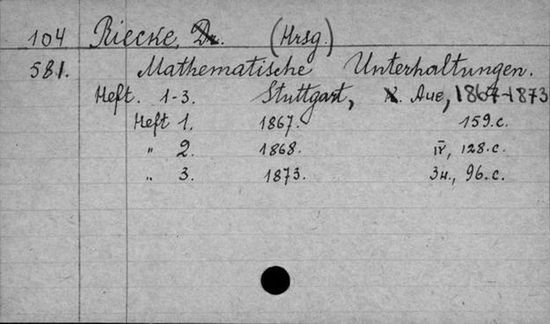 104 Riecke, Dr. (Hrsg.)
581. Mathematische Unterhaltungen.
Heft. 1-3. Stuttgart, K. Aue, 1867-1873
Heft 1. 1867. 159.c.
" 2. 1868. IV, 128.c.
" 3. 1873. 3н., 96.c.